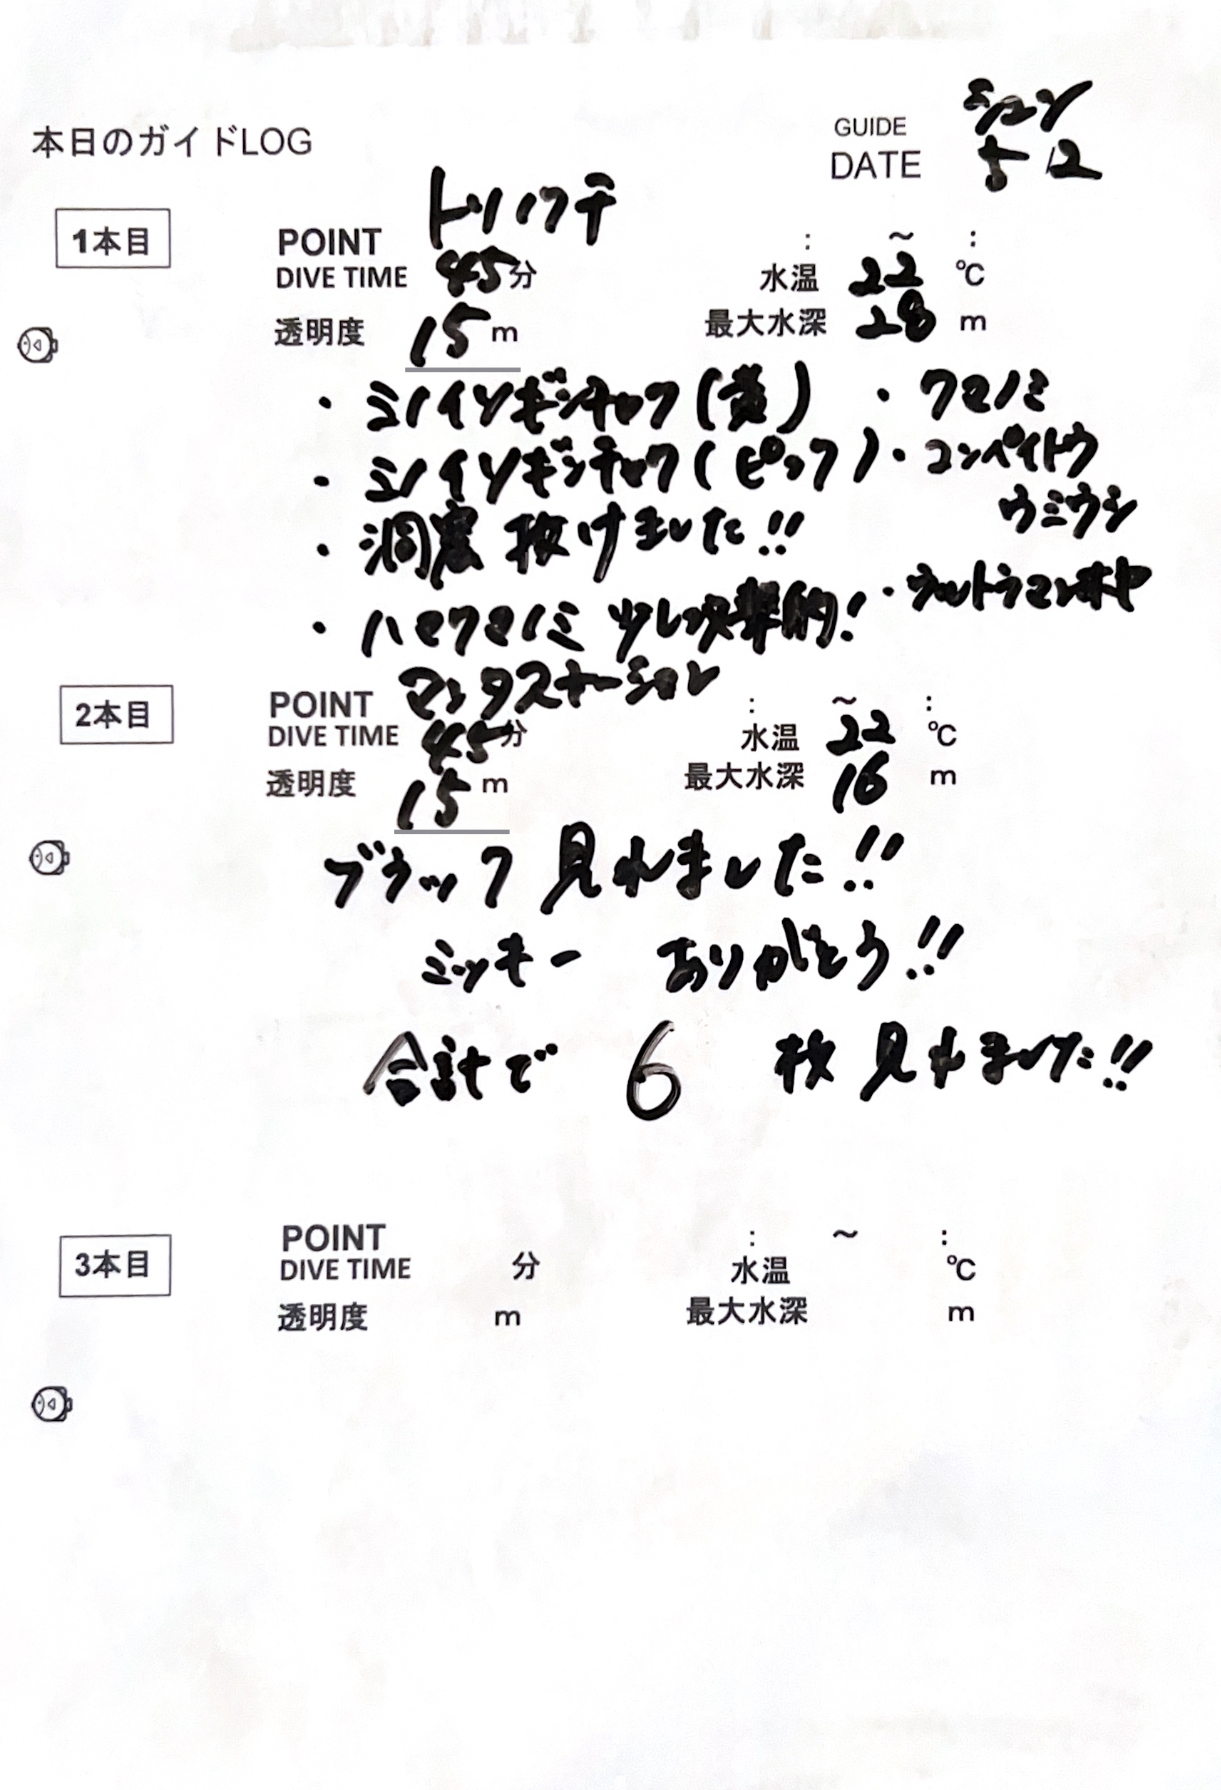 本日のガイドLOG
GUIDE ジュン
DATE 5 12
1本目
POINT トリノクチ : ～ :
DIVE TIME 45分 水温 22 ℃
透明度 15 m 最大水深 28 m
・ミノイソギンチャク(黄) ・クマノミ
・ミノイソギンチャク(ピンク) ・コンペイトウ
ウミウシ
・洞窟 抜けました!!
・ハマクマノミ 少し攻撃的! ・ウルトラマンホヤ
2本目
POINT マンタステーション : ～ :
DIVE TIME 45分 水温 22 ℃
透明度 15 m 最大水深 16 m
ブラック 見れました!!
ミッキー ありがとう!!
合計で 6 枚 見れました!!
3本目
POINT : ～ :
DIVE TIME 分 水温 ℃
透明度 m 最大水深 m